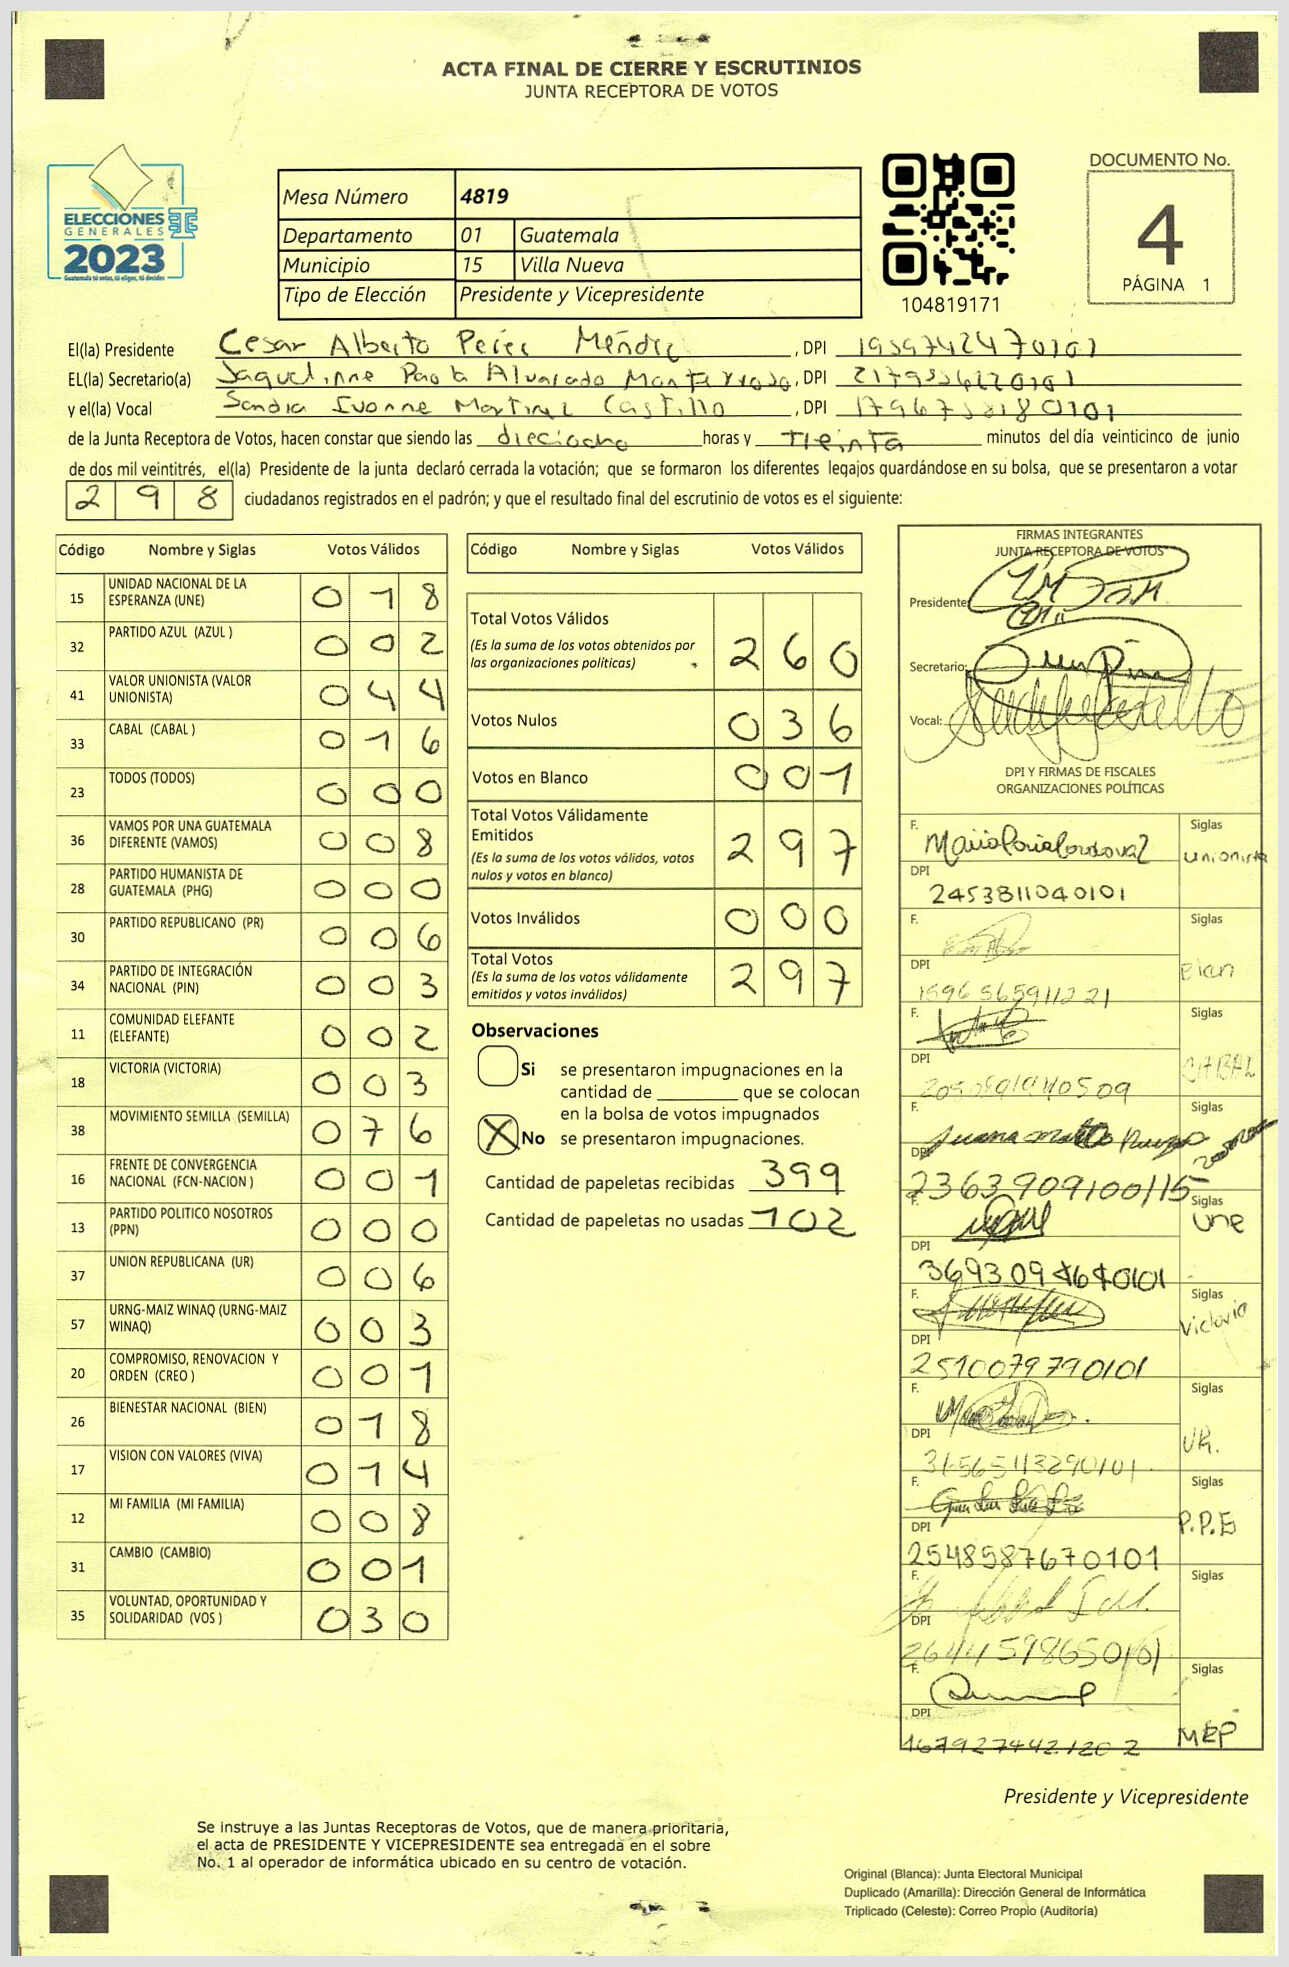 ACTA FINAL DE CIERRE Y ESCRUTINIOS
JUNTA RECEPTORA DE VOTOS
ELECCIONES
GENERALES
2023
Guatemala tú votas, tú eliges, tú decides
Mesa Número 4819
Departamento 01 Guatemala
Municipio 15 Villa Nueva
Tipo de Elección Presidente y Vicepresidente
104819171
DOCUMENTO No.
4
PÁGINA 1
El(la) Presidente Cesar Alberto Perez Méndez, DPI 1959742470101
EL(la) Secretario(a) Jaquelinne Paola Alvarado Monterroso, DPI
y el(la) Vocal Sandra Ivonne Martinez Castillo, DPI
de la Junta Receptora de Votos, hacen constar que siendo las dieciocho horas y treinta minutos del día veinticinco de junio
de dos mil veintitrés, el(la) Presidente de la junta declaró cerrada la votación; que se formaron los diferentes legajos guardándose en su bolsa, que se presentaron a votar
298 ciudadanos registrados en el padrón; y que el resultado final del escrutinio de votos es el siguiente:
Código Nombre y Siglas Votos Válidos
15 UNIDAD NACIONAL DE LA ESPERANZA (UNE) 018
32 PARTIDO AZUL (AZUL ) 002
41 VALOR UNIONISTA (VALOR UNIONISTA) 044
33 CABAL (CABAL ) 016
23 TODOS (TODOS) 000
36 VAMOS POR UNA GUATEMALA DIFERENTE (VAMOS) 008
28 PARTIDO HUMANISTA DE GUATEMALA (PHG) 000
30 PARTIDO REPUBLICANO (PR) 006
34 PARTIDO DE INTEGRACIÓN NACIONAL (PIN) 003
11 COMUNIDAD ELEFANTE (ELEFANTE) 002
18 VICTORIA (VICTORIA) 003
38 MOVIMIENTO SEMILLA (SEMILLA) 076
16 FRENTE DE CONVERGENCIA NACIONAL (FCN-NACION ) 001
13 PARTIDO POLITICO NOSOTROS (PPN) 000
37 UNION REPUBLICANA (UR) 006
57 URNG-MAIZ WINAQ (URNG-MAIZ WINAQ) 003
20 COMPROMISO, RENOVACION Y ORDEN (CREO ) 001
26 BIENESTAR NACIONAL (BIEN) 018
17 VISION CON VALORES (VIVA) 014
12 MI FAMILIA (MI FAMILIA) 008
31 CAMBIO (CAMBIO) 001
35 VOLUNTAD, OPORTUNIDAD Y SOLIDARIDAD (VOS ) 030
Código Nombre y Siglas Votos Válidos
Total Votos Válidos
(Es la suma de los votos obtenidos por las organizaciones políticas) 260
Votos Nulos 036
Votos en Blanco 001
Total Votos Válidamente Emitidos
(Es la suma de los votos válidos, votos nulos y votos en blanco) 297
Votos Inválidos 000
Total Votos
(Es la suma de los votos válidamente emitidos y votos inválidos) 297
Observaciones
Si se presentaron impugnaciones en la
cantidad de ________ que se colocan
en la bolsa de votos impugnados
X No se presentaron impugnaciones.
Cantidad de papeletas recibidas 399
Cantidad de papeletas no usadas 102
FIRMAS INTEGRANTES
JUNTA RECEPTORA DE VOTOS
Presidente:
Secretario:
Vocal:
DPI Y FIRMAS DE FISCALES
ORGANIZACIONES POLÍTICAS
F. Siglas
unionista
DPI
2453811040101
F. Siglas
DPI
F. Siglas
CABAL
DPI
F. Siglas
DPI
2363909100115
F. Siglas
une
DPI
F. Siglas
Victoria
DPI
2510079790101
F. Siglas
UR.
DPI
F. Siglas
P.P.E
DPI
2548587670101
F. Siglas
DPI
2644598650101
F. Siglas
MEP
DPI
Presidente y Vicepresidente
Se instruye a las Juntas Receptoras de Votos, que de manera prioritaria,
el acta de PRESIDENTE Y VICEPRESIDENTE sea entregada en el sobre
No. 1 al operador de informática ubicado en su centro de votación.
Original (Blanca): Junta Electoral Municipal
Duplicado (Amarilla): Dirección General de Informática
Triplicado (Celeste): Correo Propio (Auditoría)